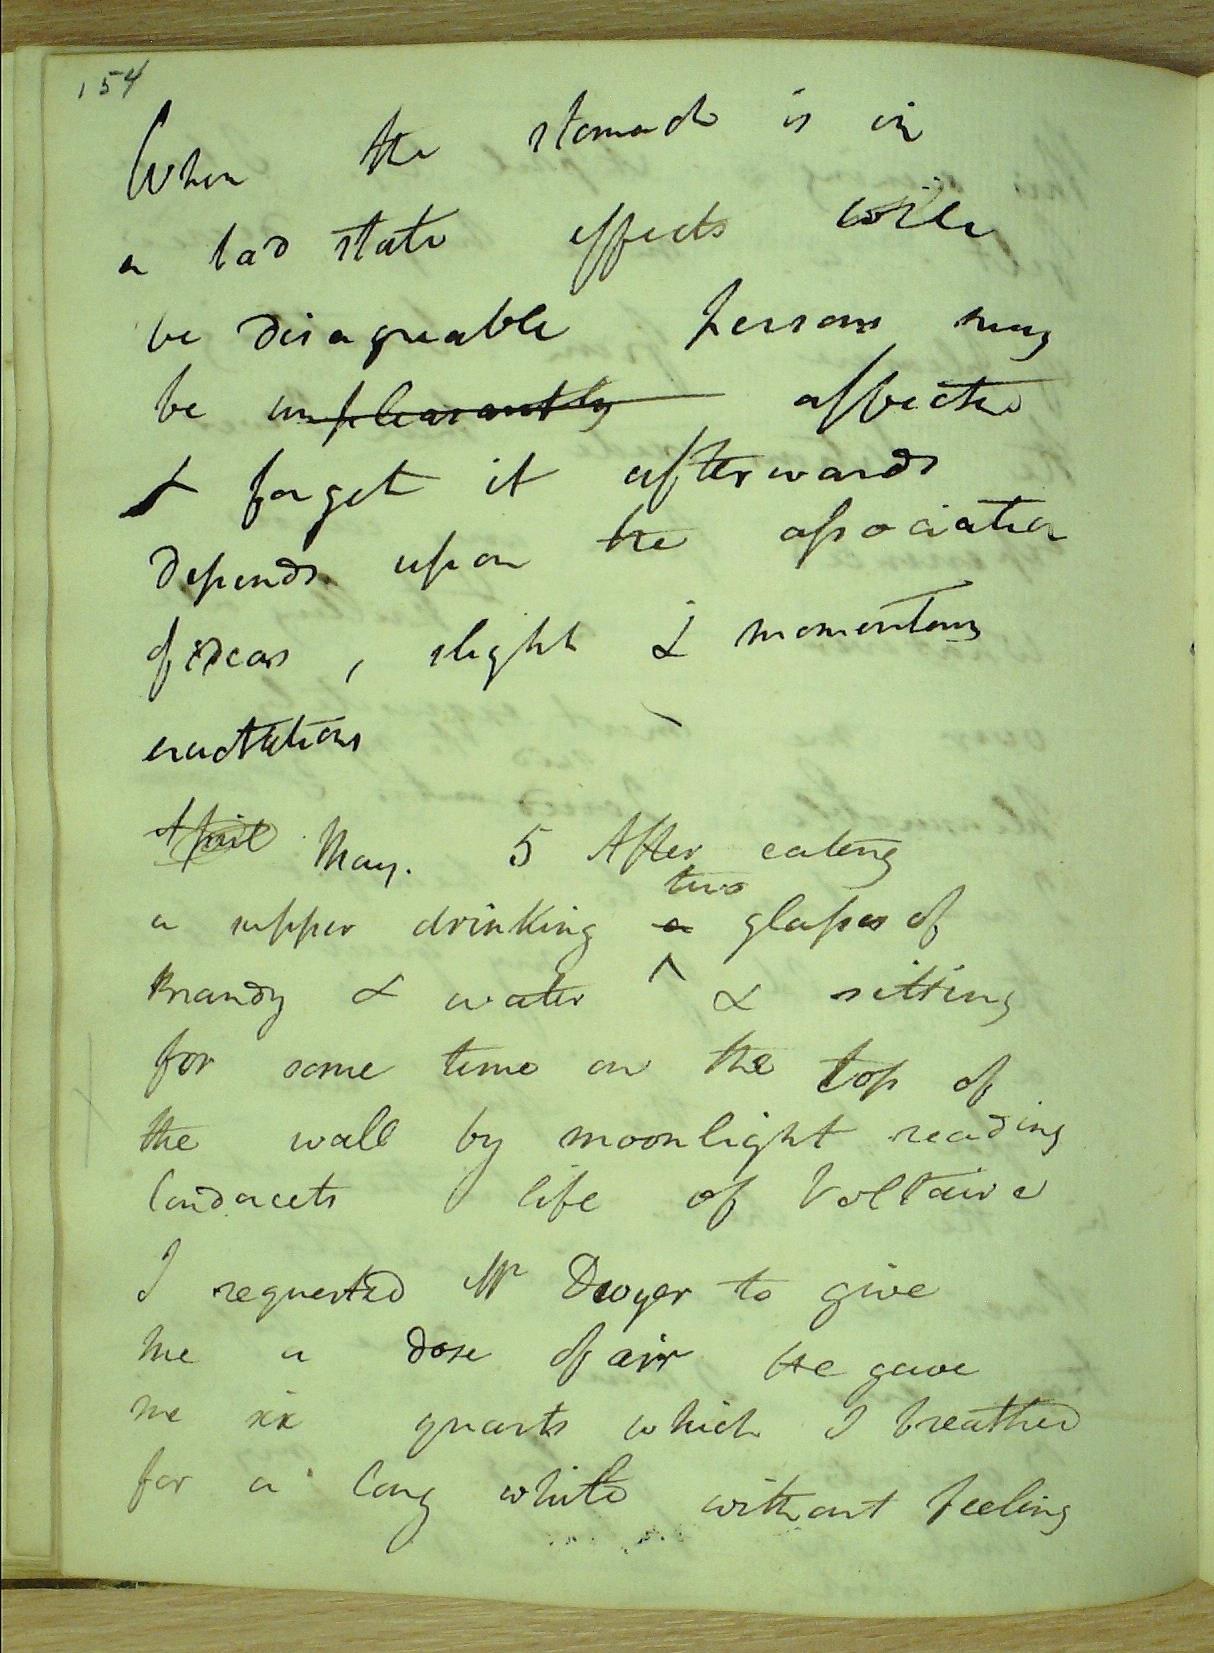 154
When the stomach is in
a bad state effects will
be disagreable Persons may
be unpleasantly affected
& forget it afterwards
depends upon the association
of ideas, slight & momentary
eructations
April May. 5 After eating
two
a supper drinking a glasses of
Brandy & water ^ & sitting
for some time on the top of
the wall by moonlight reading
Condorcets life of Voltaire
I requested Mr Dwyer to give
me a dose of air He gave
me six quarts which I breathed
for a long while without feeling